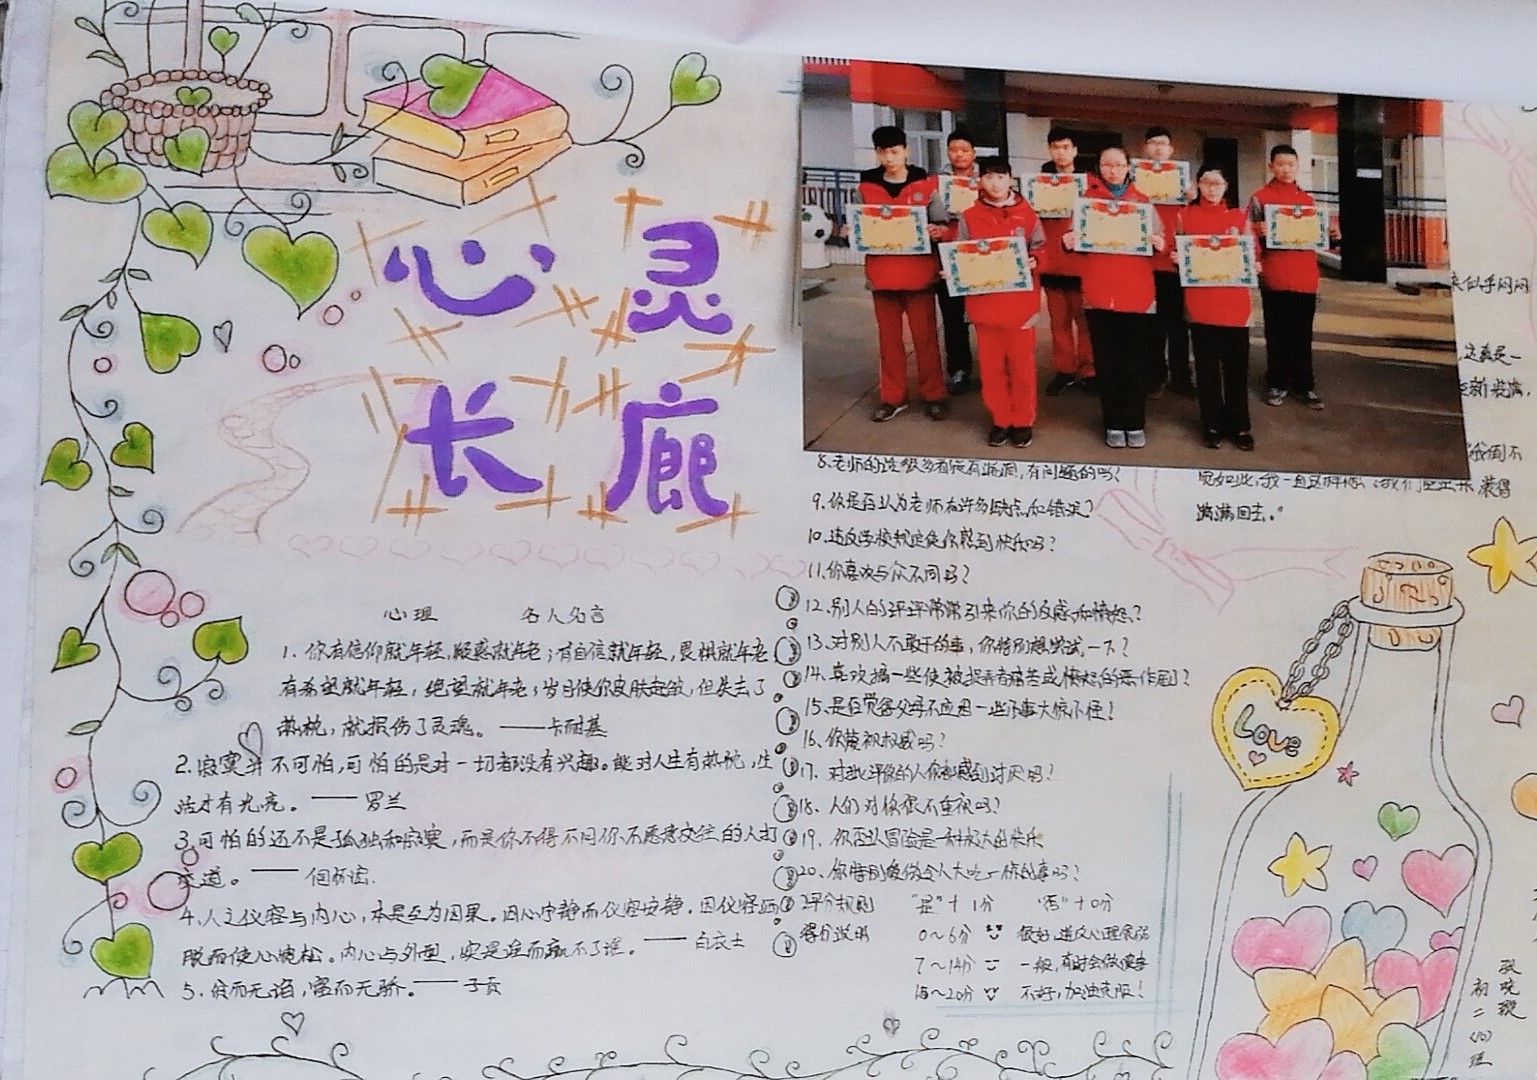 心灵
长廊
心理 名人名言
1. 你有信仰就年轻,疑惑就年老;有自信就年轻,畏惧就年老
有希望就年轻,绝望就年老;岁月使你皮肤起皱,但失去了
热忱,就损伤了灵魂。——卡耐基
2.寂寞并不可怕,可怕的是对一切都没有兴趣。能对人生有热忱,生
活才有光亮。——罗兰
3.可怕的还不是孤独和寂寞,而是你不得不同你不愿意交往的人打
交道。——
4.人之仪容与内心,本是互为因果。因心宁静而仪容安静。因仪容洒
脱而使心境松。内心与外面,实是
5.贫而无谄,富而无骄。——子贡
有问题的吗?
9.你是否认为老师有许多缺点和错误?
10.违反学校规定使你感到快乐吗?
11.你喜欢与众不同吗?
12.别人的评评常常引来你的反感和愤怒?
13.对别人不敢干的事,你特别想尝试一下?
14.喜欢搞一些使被捉弄者痛苦或愤怒的恶作剧?
15.是否觉得父母不应因一些小事大惊小怪!
16.你蔑视权威吗?
17.对批评你的人你都感到讨厌吗?
18.人们对你很不重视吗?
19.你否认冒险是一种极大的快乐
20.你特别爱做令人大吃一惊的事吗?
评分规则 “是”+1分 “否”+0分
得分说明 0~6分 很好,逆反心理
7~14分 一般,有时会做傻事
15~20分 不好,加油克服!
来似乎网网
,这真是一
我一直这样想
满满回去。”
Love
初二(10)班